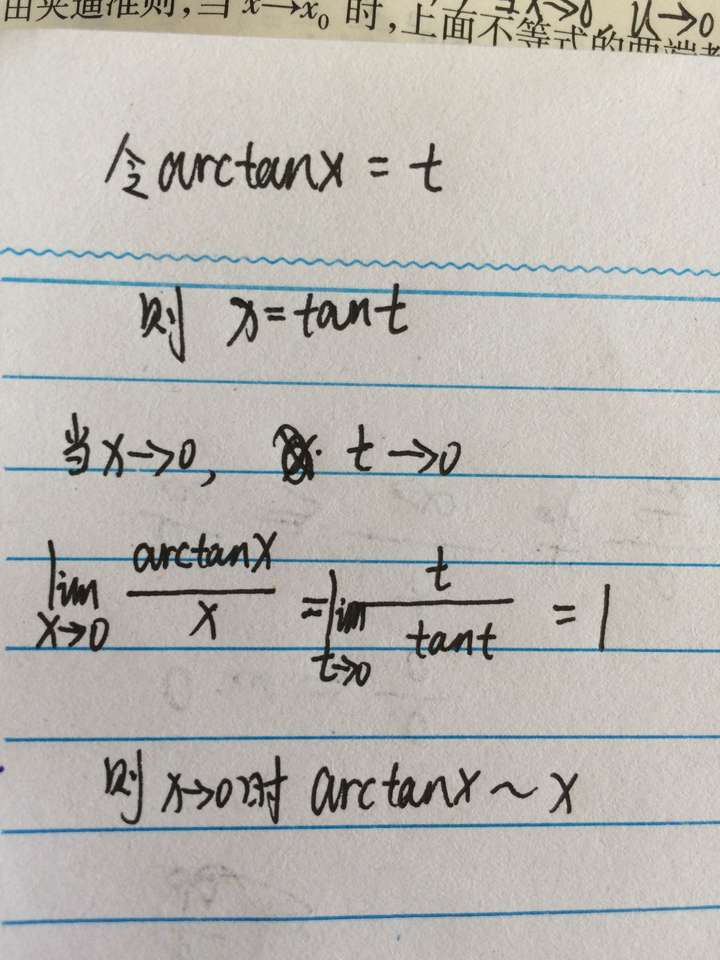 由夹逼准则,当 x→x₀ 时,上面不等式的两端都
当x→0, u→0
令 arctanx = t
则 x=tant
当x→0, t→0
lim x→0 arctanx/x = lim t→0 t/tant = 1
则 x→0时 arctanx ~ x